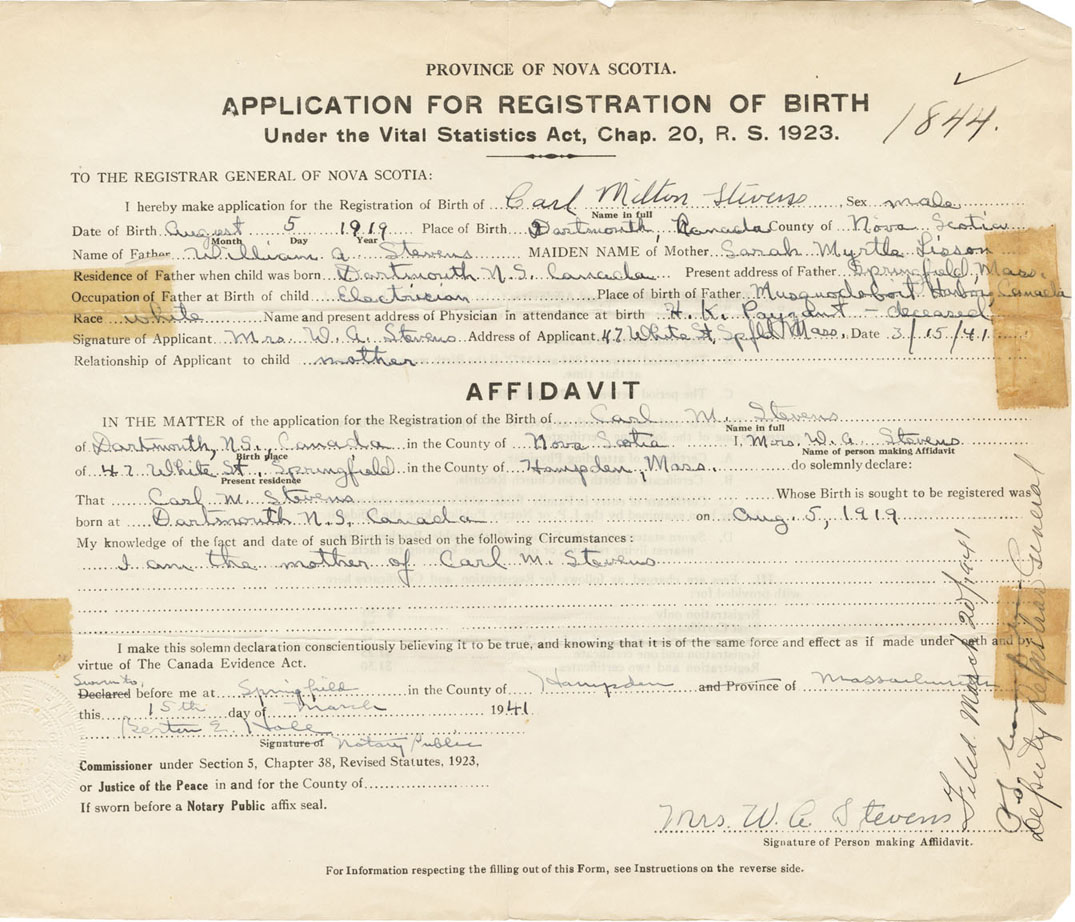 PROVINCE OF NOVA SCOTIA.
APPLICATION FOR REGISTRATION OF BIRTH
Under the Vital Statistics Act, Chap. 20, R. S. 1923.
1844.
TO THE REGISTRAR GENERAL OF NOVA SCOTIA:
I hereby make application for the Registration of Birth of Carl Milton Stevens Sex male
Name in full
Date of Birth August 5 1919 Place of Birth Dartmouth, Canada County of Nova Scotia
Month Day Year
Name of Father William A. Stevens MAIDEN NAME of Mother Sarah Myrtle Lisson
Residence of Father when child was born Dartmouth N.S. Canada Present address of Father Springfield, Mass.
Occupation of Father at Birth of child Electrician Place of birth of Father Musquodoboit Harbor, Canada
Race white Name and present address of Physician in attendance at birth H. K. Payzant - deceased
Signature of Applicant Mrs. W. A. Stevens Address of Applicant 47 White St, Spfld Mass. Date 3/15/41
Relationship of Applicant to child mother
AFFIDAVIT
IN THE MATTER of the application for the Registration of the Birth of Carl M. Stevens
Name in full
of Dartmouth, N.S., Canada in the County of Nova Scotia I, Mrs. W. A. Stevens
Birth place Name of person making Affidavit
of 47 White St., Springfield in the County of Hampden, Mass. do solemnly declare:
Present residence
That Carl M. Stevens Whose Birth is sought to be registered was
born at Dartmouth N.S. Canada on Aug. 5, 1919
My knowledge of the fact and date of such Birth is based on the following Circumstances:
I am the mother of Carl M. Stevens
I make this solemn declaration conscientiously believing it to be true, and knowing that it is of the same force and effect as if made under oath and by
virtue of The Canada Evidence Act.
Sworn to,
Declared before me at Springfield in the County of Hampden and Province of Massachusetts
this 15th day of March 1941
Berton E. Hale
Signature of Notary Public
Commissioner under Section 5, Chapter 38, Revised Statutes, 1923,
or Justice of the Peace in and for the County of
If sworn before a Notary Public affix seal.
Mrs. W. A. Stevens
Signature of Person making Affidavit.
For Information respecting the filling out of this Form, see Instructions on the reverse side.
Filed. March 20/1941
Deputy Registrar General